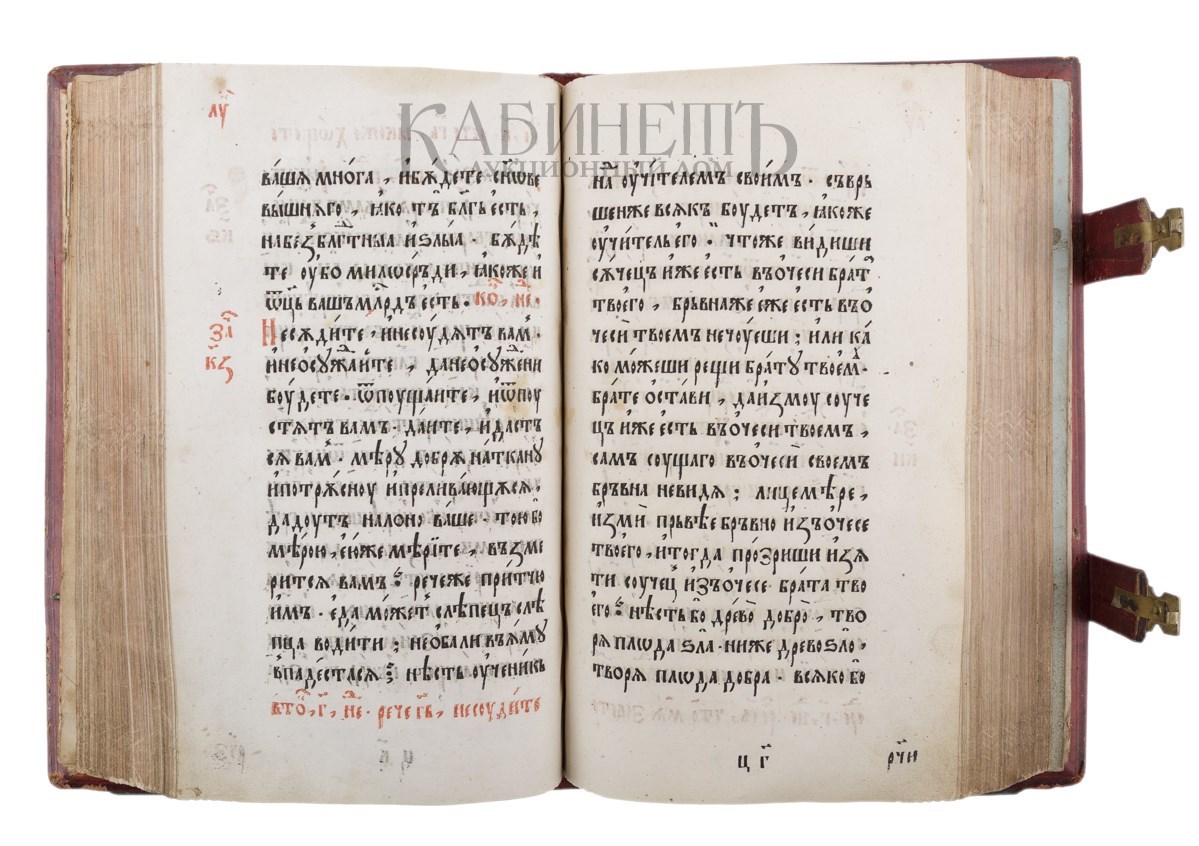 КАБИНЕТЪ
АУКЦИОННЫЙ ДОМ
лꙋ
ва́шѧ мно́га, и҆бѫ́дете сн҃ове
вы́шнѧго, ꙗ҆́ко то́ъ бл҃гь е҆́сть,
на без̾бл҃гⷣтныѧ и҆ ѕлы́ѧ. бѫ́дѣ
те оу҆́бо милѡсръ́ди, ꙗ҆́коже и҆
ѿц҃ь вашъ млⷭ҇рдъ е҆́сть. ко, не.
за҃
кз
Не сѫди́те, и҆ не соу́дѧтъ вамⸯ.
и҆ не ѡ҆су́жⷣаи҆те, да не ѡ҆су́жⷣени
боу́дете. ѿпоуща́ите, и҆ ѿпоу
стѧ́тъ вамъ. да́ите, и҆ да́стъ
сѧ вамⸯ. мѣ́ру добрѧ́ натка́ну
и҆ потрѧ́сноу и҆ прелива́ющѫсѧ,
даду́тъ на ло́но ва́ше. то́ю бо
мѣ́рою, е҆́юже мѣ́рите, възмѣ
ритсѧ вамъ. рече́же при́тчю
и҆́мъ. е҆да́ мо́жетъ слѣпе́цъ слѣ
пца води́ти; не ѻ҆́бали въ ꙗ҆́му
впаде́стасѧ; нѣ́сть оу҆чени́къ
вто, г҃, не. рече гь҃, несоуди́те
на оу҆чи́телемъ свои́мъ. съвръ
ше́нже всѧ́къ боу́детъ, ꙗ҆́коже
оу҆чи́тель е҆го̀. что́же ви́диши
сѫче́цъ и҆́же е҆́сть въ ѻ҆́чеси бра́тⷶ
твоего̀, бръвна́же е҆́же е҆́сть въ ѻ҆́
чеси твое́мъ не чоу́еши; и҆ли ка́
ко мо́жеши рещи бра́ту твоемⸯ.
бра́те ѻ҆ста́ви, да и҆змоу соуче
цъ и҆́же е҆́сть въ ѻ҆́чеси твое́мъ,
самъ соу́щаго въ ѻ҆́чеси свое́мъ
бръвна̀ не ви́дѧ; лицемѣ́ре,
и҆зми прь́вѣе бръвно̀ и҆зъ ѻ҆́чесе
твоего̀, и҆ тогда про́зриши и҆зѧ
ти соуче́ц и҆зъ ѻ҆́чесе бра́та тво
е҆го̀. нѣ́сть бо дре́во добро̀, тво
рѧ плѡда̀ ѕла̀. ниже дрео ѕло̀,
творѧ плѡда̀ добра̀. всѧ́ко бо
цг҃
рч҃и